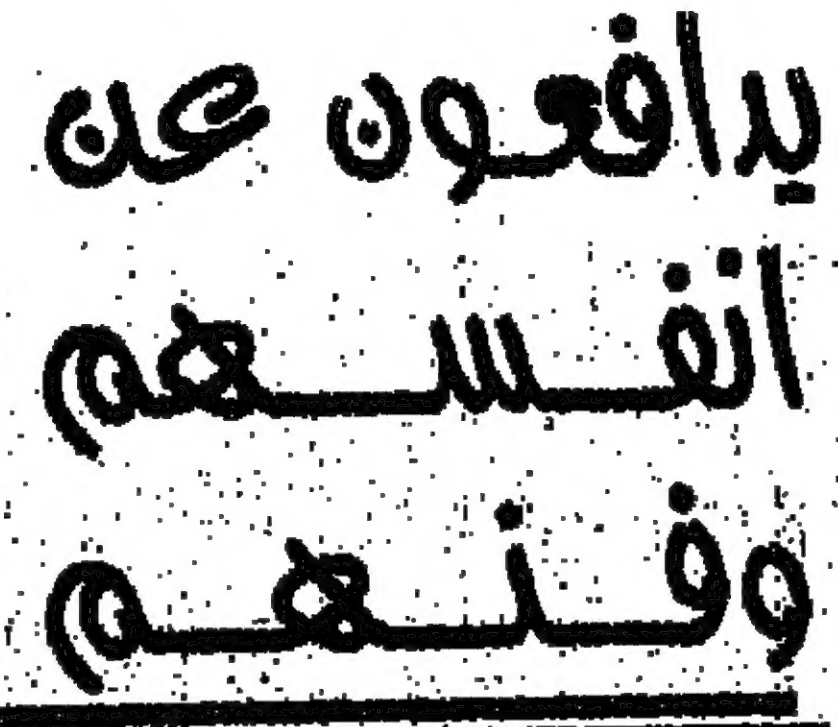 يدافعون عن
انفسهم
وفنهم